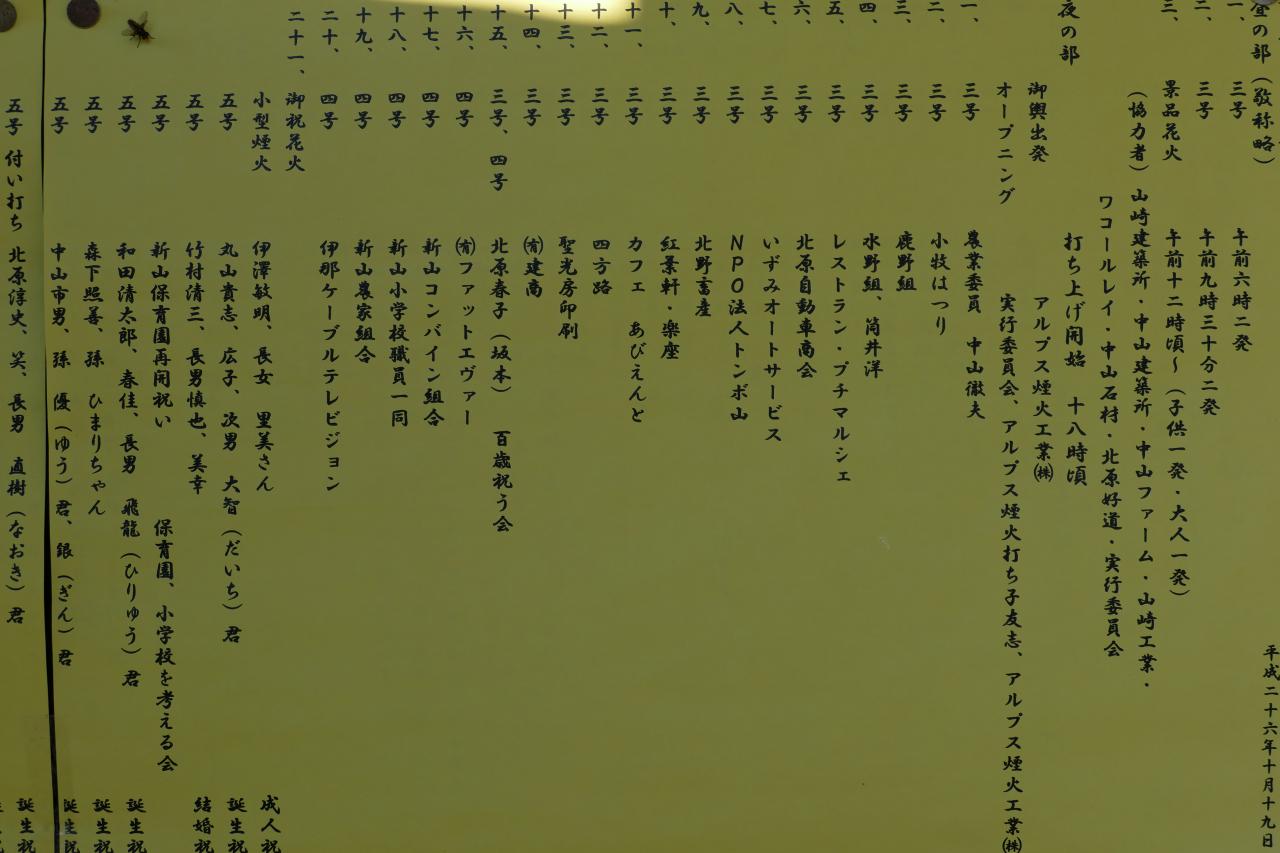 平成二十六年十月十九日
昼の部（敬称略）
一、 三号 午前六時二発
二、 三号 午前九時三十分二発
三、 景品花火 午前十二時頃～（子供一発・大人一発）
（協力者）山崎建築所・中山建築所・中山ファーム・山崎工業・
ワコールレイ・中山石材・北原好道・実行委員会
夜の部 打ち上げ開始 十八時頃
御輿出発 アルプス煙火工業㈱
オープニング 実行委員会、アルプス煙火打ち子友志、アルプス煙火工業㈱
一、 三号 農業委員 中山徹夫
二、 三号 小牧はつり
三、 三号 鹿野組
四、 三号 水野組、筒井洋
五、 三号 レストラン・プチマルシェ
六、 三号 北原自動車商会
七、 三号 いずみオートサービス
八、 三号 ＮＰＯ法人トンボ山
九、 三号 北野畜産
十、 三号 紅葉軒・楽座
十一、 三号 カフェ あびえんと
十二、 三号 四方路
十三、 三号 聖光房印刷
十四、 三号 ㈲建商
十五、 三号、四号 北原春子（坂本） 百歳祝う会
十六、 四号 ㈲ファットエヴァー
十七、 四号 新山コンバイン組合
十八、 四号 新山小学校職員一同
十九、 四号 新山農家組合
二十、 四号 伊那ケーブルテレビジョン
二十一、 御祝花火
小型煙火 伊澤敏明、長女 里美さん 成人祝
五号 丸山貴志、広子、次男 大智（だいち）君 誕生祝
五号 竹村清三、長男慎也、美幸 結婚祝
五号 新山保育園再開祝い 保育園、小学校を考える会
五号 和田清太郎、春佳、長男 飛龍（ひりゅう）君 誕生祝
五号 森下照善、孫 ひまりちゃん 誕生祝
五号 中山市男、孫 優（ゆう）君、銀（ぎん）君 誕生祝
五号 付い打ち 北原淳史、笑、長男 直樹（なおき）君 誕生祝